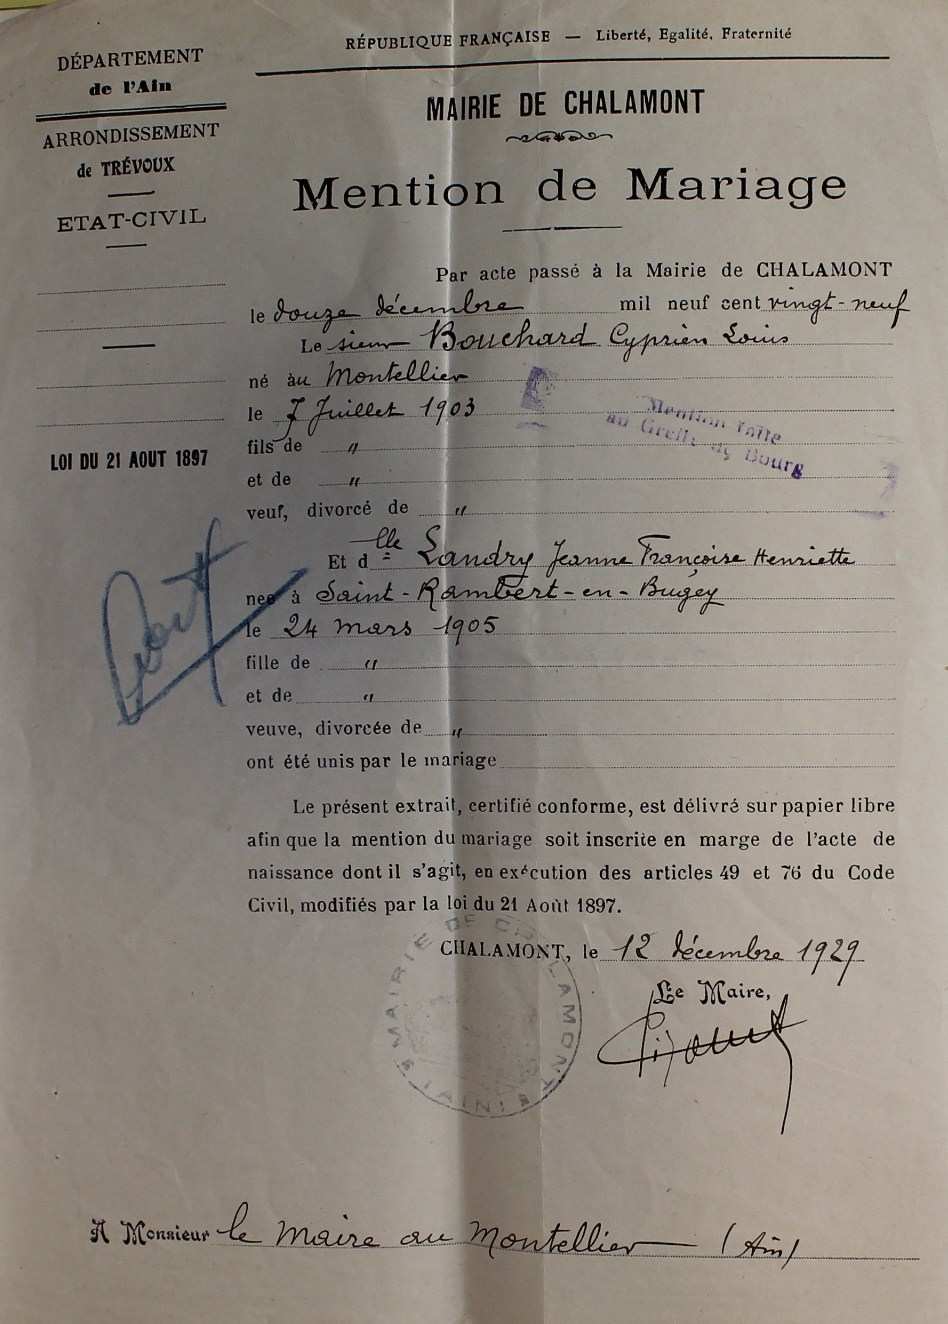 RÉPUBLIQUE FRANÇAISE — Liberté, Egalité, Fraternité
DÉPARTEMENT
de l'Ain
ARRONDISSEMENT
de TRÉVOUX
ETAT-CIVIL
LOI DU 21 AOUT 1897
MAIRIE DE CHALAMONT
Mention de Mariage
Par acte passé à la Mairie de CHALAMONT
le douze décembre mil neuf cent vingt-neuf
Le sieur Bouchard Cyprien Louis
né au Montellier
le 7 Juillet 1903
Mention faite
au Greffe de Bourg
fils de "
et de "
veuf, divorcé de "
Et dlle Landry Jeanne Françoise Henriette
nee à Saint-Rambert-en-Bugey
le 24 mars 1905
fille de "
et de "
veuve, divorcée de "
ont été unis par le mariage
Le présent extrait, certifié conforme, est délivré sur papier libre
afin que la mention du mariage soit inscrite en marge de l'acte de
naissance dont il s'agit, en exécution des articles 49 et 76 du Code
Civil, modifiés par la loi du 21 Août 1897.
CHALAMONT, le 12 décembre 1929
Le Maire,
MAIRIE DE CHALAMONT (AIN)
A Monsieur le Maire au Montellier — (Ain)